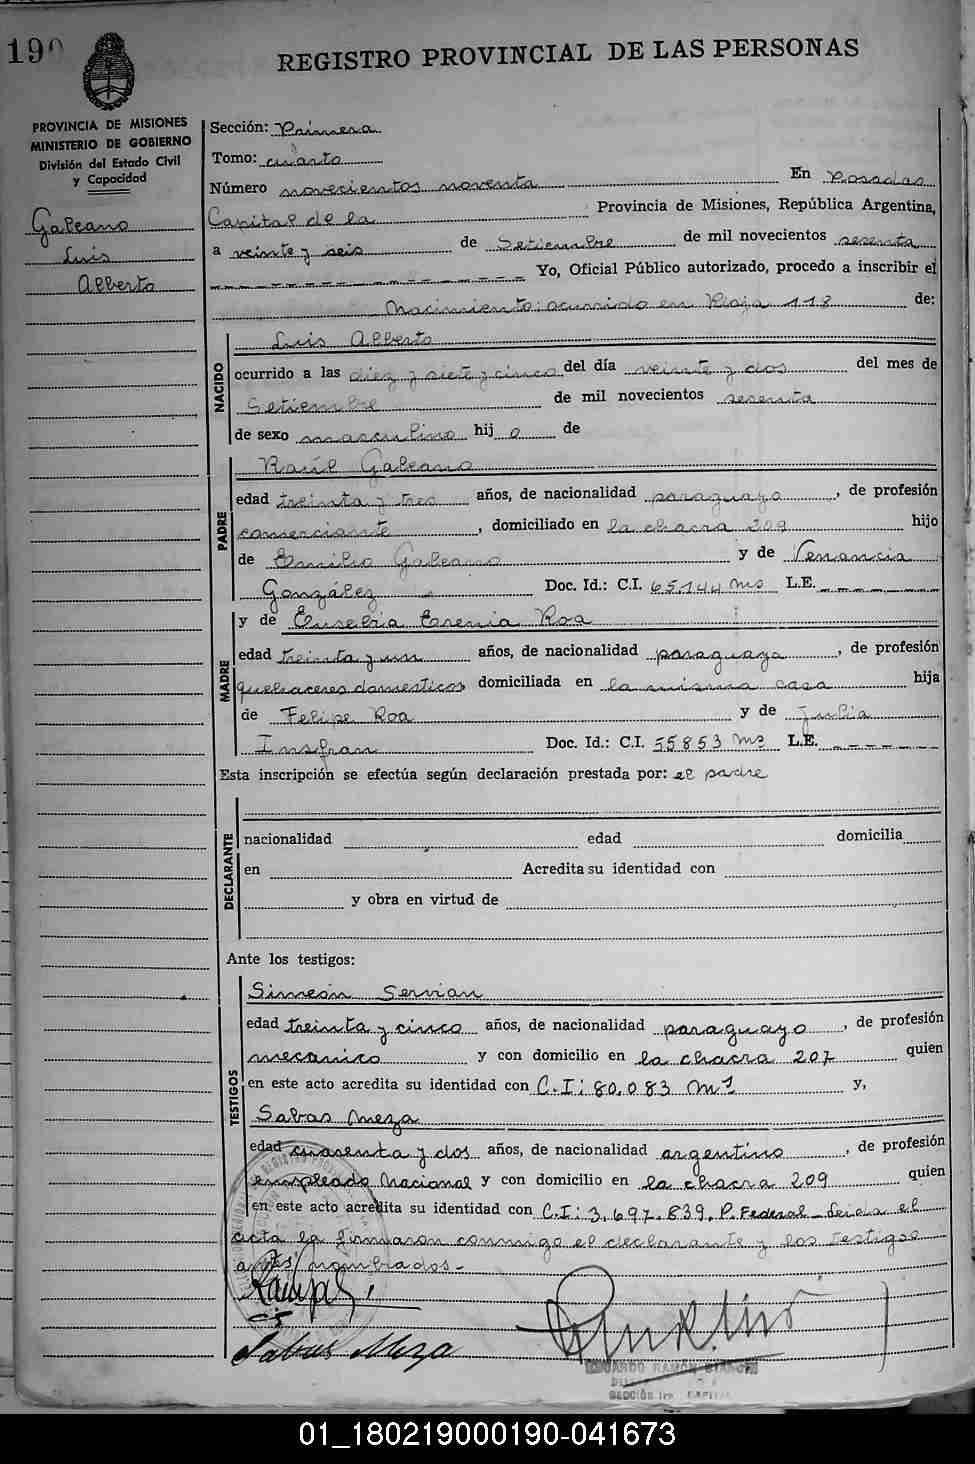 190
REGISTRO PROVINCIAL DE LAS PERSONAS
PROVINCIA DE MISIONES
MINISTERIO DE GOBIERNO
División del Estado Civil
y Capacidad
Galeano
Luis
Alberto
Sección: Primera
Tomo: cuarto
Número novecientos noventa En Posadas
Capital de la Provincia de Misiones, República Argentina,
a veinte y seis de Setiembre de mil novecientos sesenta
Yo, Oficial Público autorizado, procedo a inscribir el
Nacimiento: ocurrido en Rioja 118 de:
NACIDO
Luis Alberto
ocurrido a las diez y siete y cinco del día veinte y dos del mes de
Setiembre de mil novecientos sesenta
de sexo masculino hij o de
PADRE
Raúl Galeano
edad treinta y tres años, de nacionalidad paraguayo, de profesión
comerciante, domiciliado en la chacra 209 hijo
de Emilio Galeano y de Venancia
González Doc. Id.: C.I. 65.144 Mns L.E.
MADRE
y de Eusebia Erenia Roa
edad treinta y un años, de nacionalidad paraguaya, de profesión
quehaceres domesticos domiciliada en la misma casa hija
de Felipe Roa y de Julia
Insfran Doc. Id.: C.I. 55853 Mns L.E.
Esta inscripción se efectúa según declaración prestada por: el padre
DECLARANTE
nacionalidad edad domicilia
en Acredita su identidad con
y obra en virtud de
Ante los testigos:
TESTIGOS
Simeón Servian
edad treinta y cinco años, de nacionalidad paraguayo, de profesión
mecanico y con domicilio en la chacra 207 quien
en este acto acredita su identidad con C.I: 80.083 Mns y,
Sabas Meza
edad cuarenta y dos años, de nacionalidad argentino, de profesión
empleado Nacional y con domicilio en la chacra 209 quien
en este acto acredita su identidad con C.I: 3.697.839. P. Federal_ Leida el
acta la firmaron conmigo el declarante y los testigos
antes nombrados.-
Sabas Meza
EDUARDO RAMÓN
SECCIÓN 1ra. CAPITAL
01_180219000190-041673